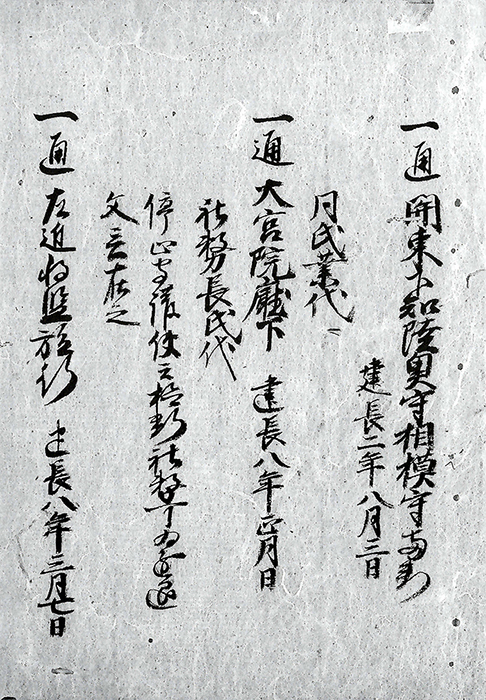 一通 関東下知陸奥守相模守両判
建長二年八月三日
同氏業代
一通 大宮院庁下 建長八年正月日
社務長氏代
停止守護使云検断社務丁
文言在之
一通 左近将監施行 建長八年三月七日